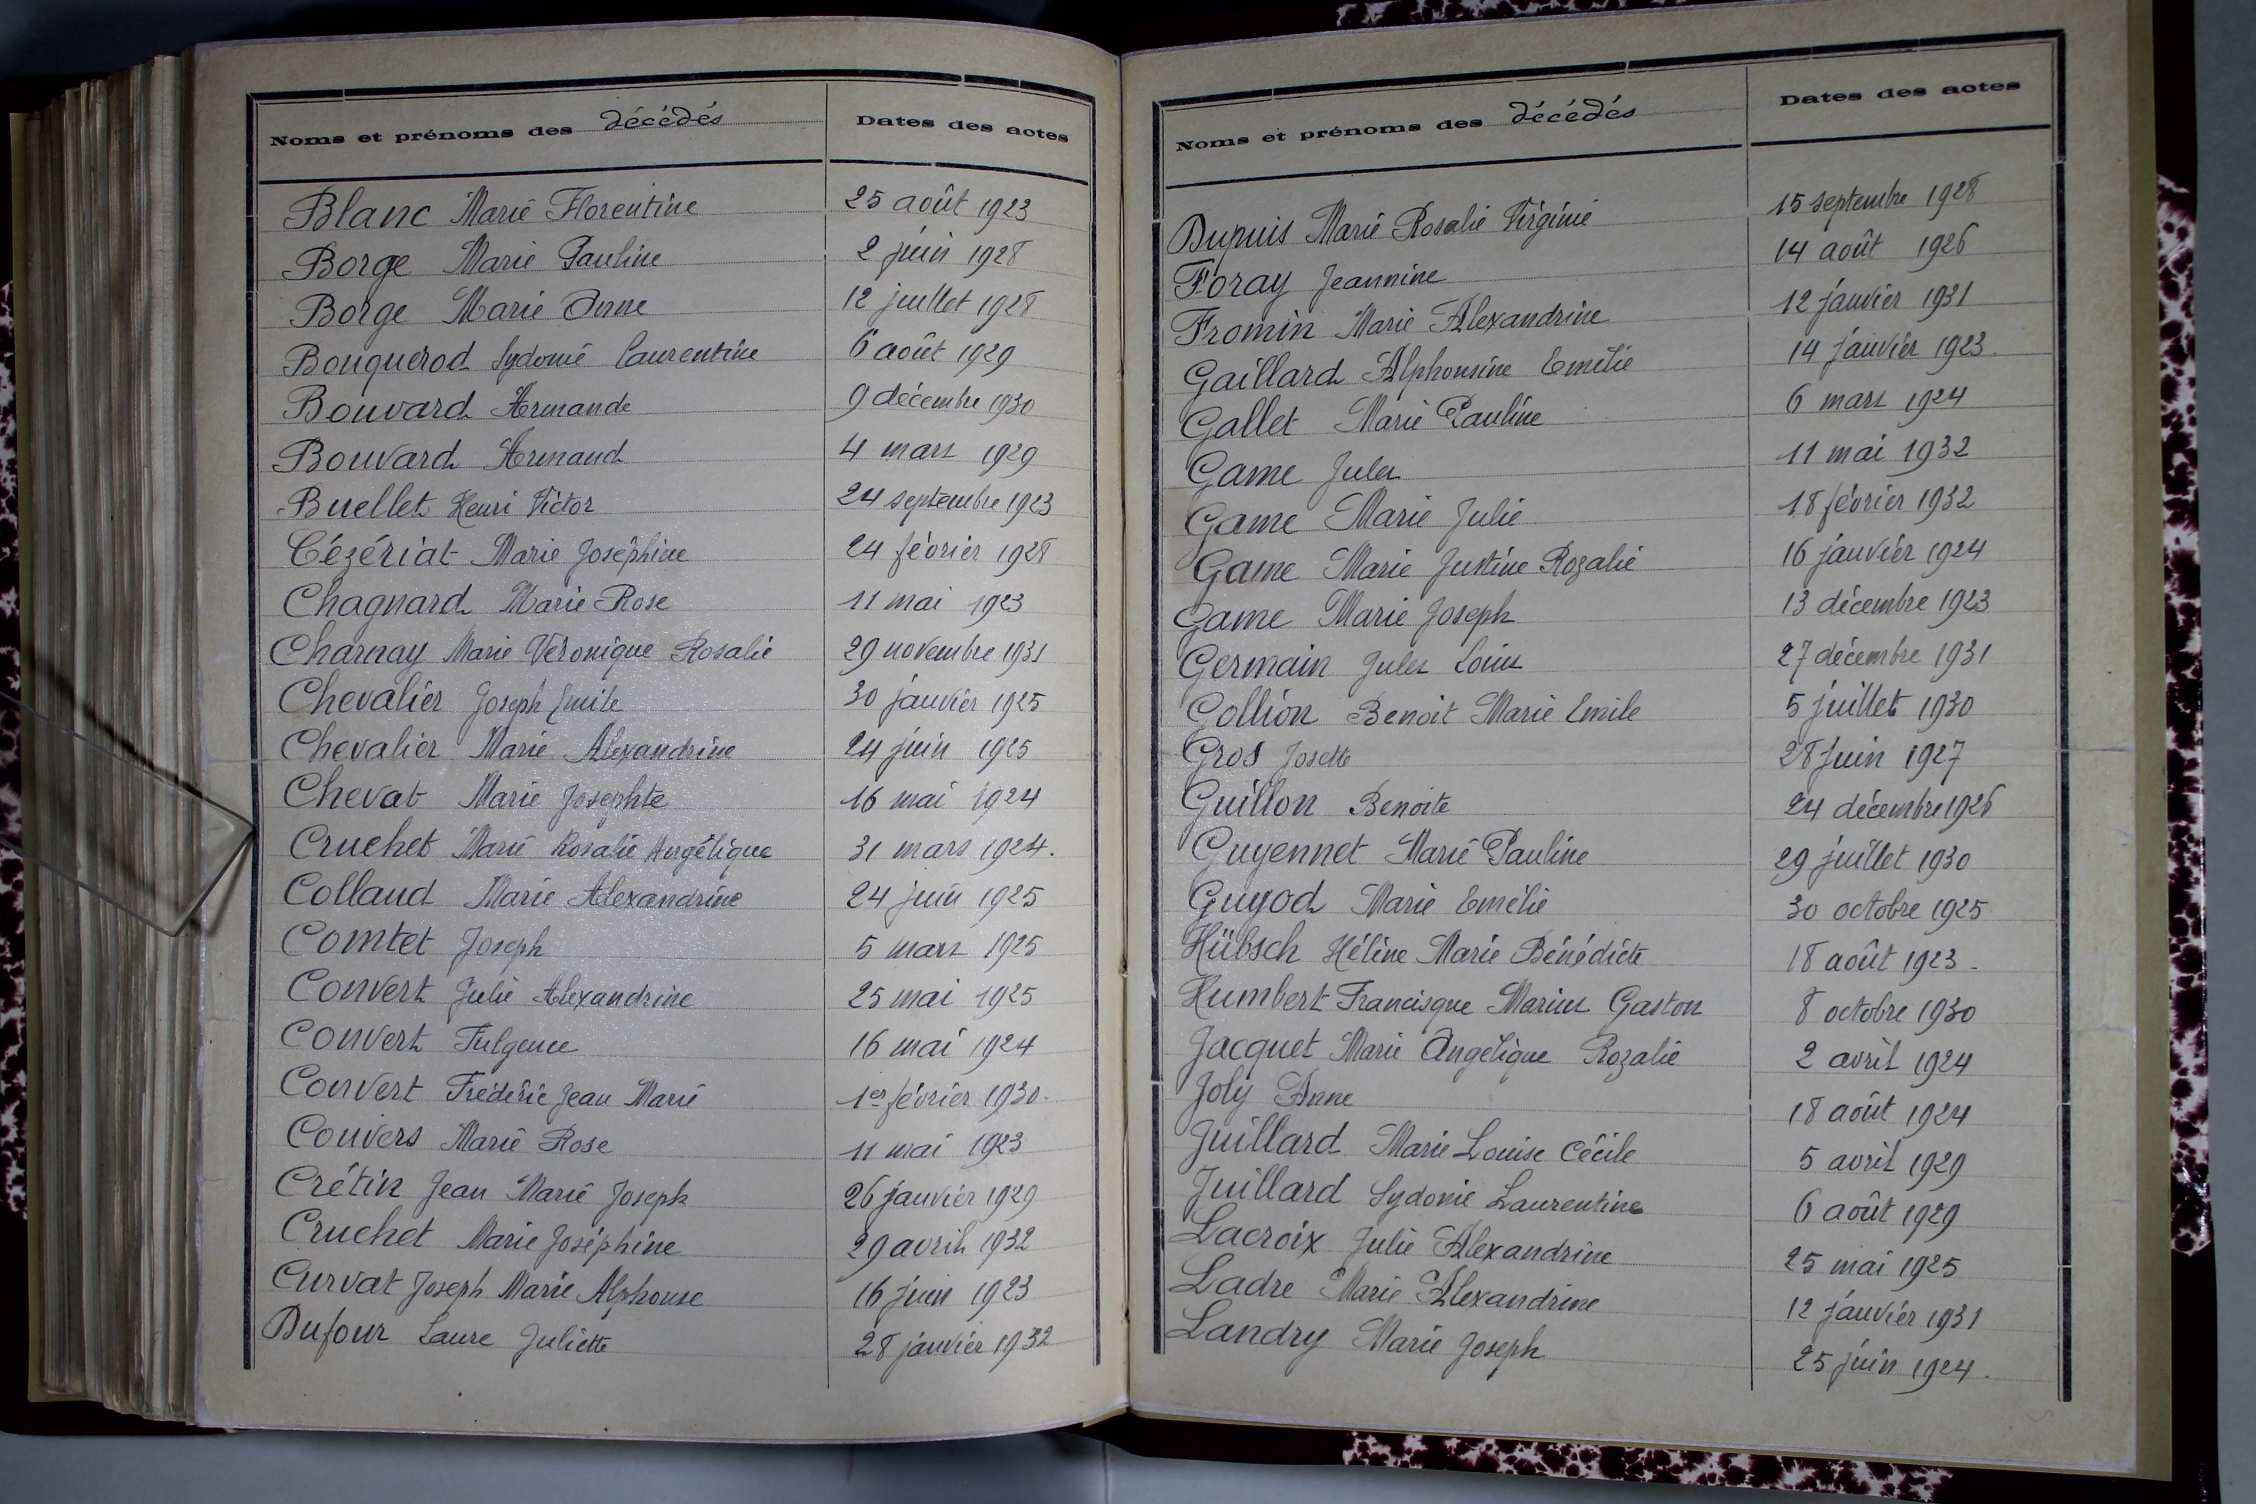 Noms et prénoms des décédés Dates des actes
Blanc Marie Florentine 25 août 1923
Borge Marie Pauline 2 juin 1928
Borge Marie Anne 12 juillet 1928
Bouquerod Sydonie Laurentine 6 août 1929
Bouvard Armande 9 décembre 1930
Bouvard Armand 4 mars 1929
Buellet Henri Victor 24 septembre 1923
Cézériat Marie Joséphine 24 février 1928
Chagnard Marie Rose 11 mai 1923
Charnay Marie Véronique Rosalie 29 novembre 1931
Chevalier Joseph Emile 30 janvier 1925
Chevalier Marie Alexandrine 24 juin 1925
Chevat Marie Josephte 16 mai 1924
Cruchet Marie Rosalie Angélique 31 mars 1924.
Collaud Marie Alexandrine 24 juin 1925
Comtet Joseph 5 mars 1925
Convert Julie Alexandrine 25 mai 1925
Convert Fulgence 16 mai 1924
Convert Frédéric Jean Marie 1er février 1930.
Convers Marie Rose 11 mai 1923
Crétin Jean Marie Joseph 26 janvier 1929
Cruchet Marie Joséphine 29 avril 1932
Curvat Joseph Marie Alphonse 16 juin 1923
Dufour Laure Juliette 28 janvier 1932
Noms et prénoms des décédés Dates des actes
Dupuis Marie Rosalie Virginie 15 septembre 1928
Foray Jeannine 14 août 1926
Fromin Marie Alexandrine 12 janvier 1931
Gaillard Alphonsine Emélie 14 janvier 1923.
Gallet Marie Pauline 6 mars 1924
Game Jules 11 mai 1932
Game Marie Julie 18 février 1932
Game Marie Justine Rozalie 16 janvier 1924
Game Marie Joseph 13 décembre 1923
Germain Jules Louis 27 décembre 1931
Gollion Benoit Marie Emile 5 juillet 1930
Gros Josette 28 Juin 1927
Guillon Benoite 24 décembre 1926
Guyennet Marie Pauline 29 juillet 1930
Guyod Marie Emélie 30 octobre 1925
Hübsch Hélène Marie Bénédicte 18 août 1923.
Humbert Francisque Marius Gaston 8 octobre 1930
Jacquet Marie Angélique Rozalie 2 avril 1924
Joly Anne 18 août 1924
Juillard Marie Louise Cécile 5 avril 1929
Juillard Sydonie Laurentine 6 août 1929
Lacroix Julie Alexandrine 25 mai 1925
Ladre Marie Alexandrine 12 janvier 1931
Landry Marie Joseph 25 juin 1924.